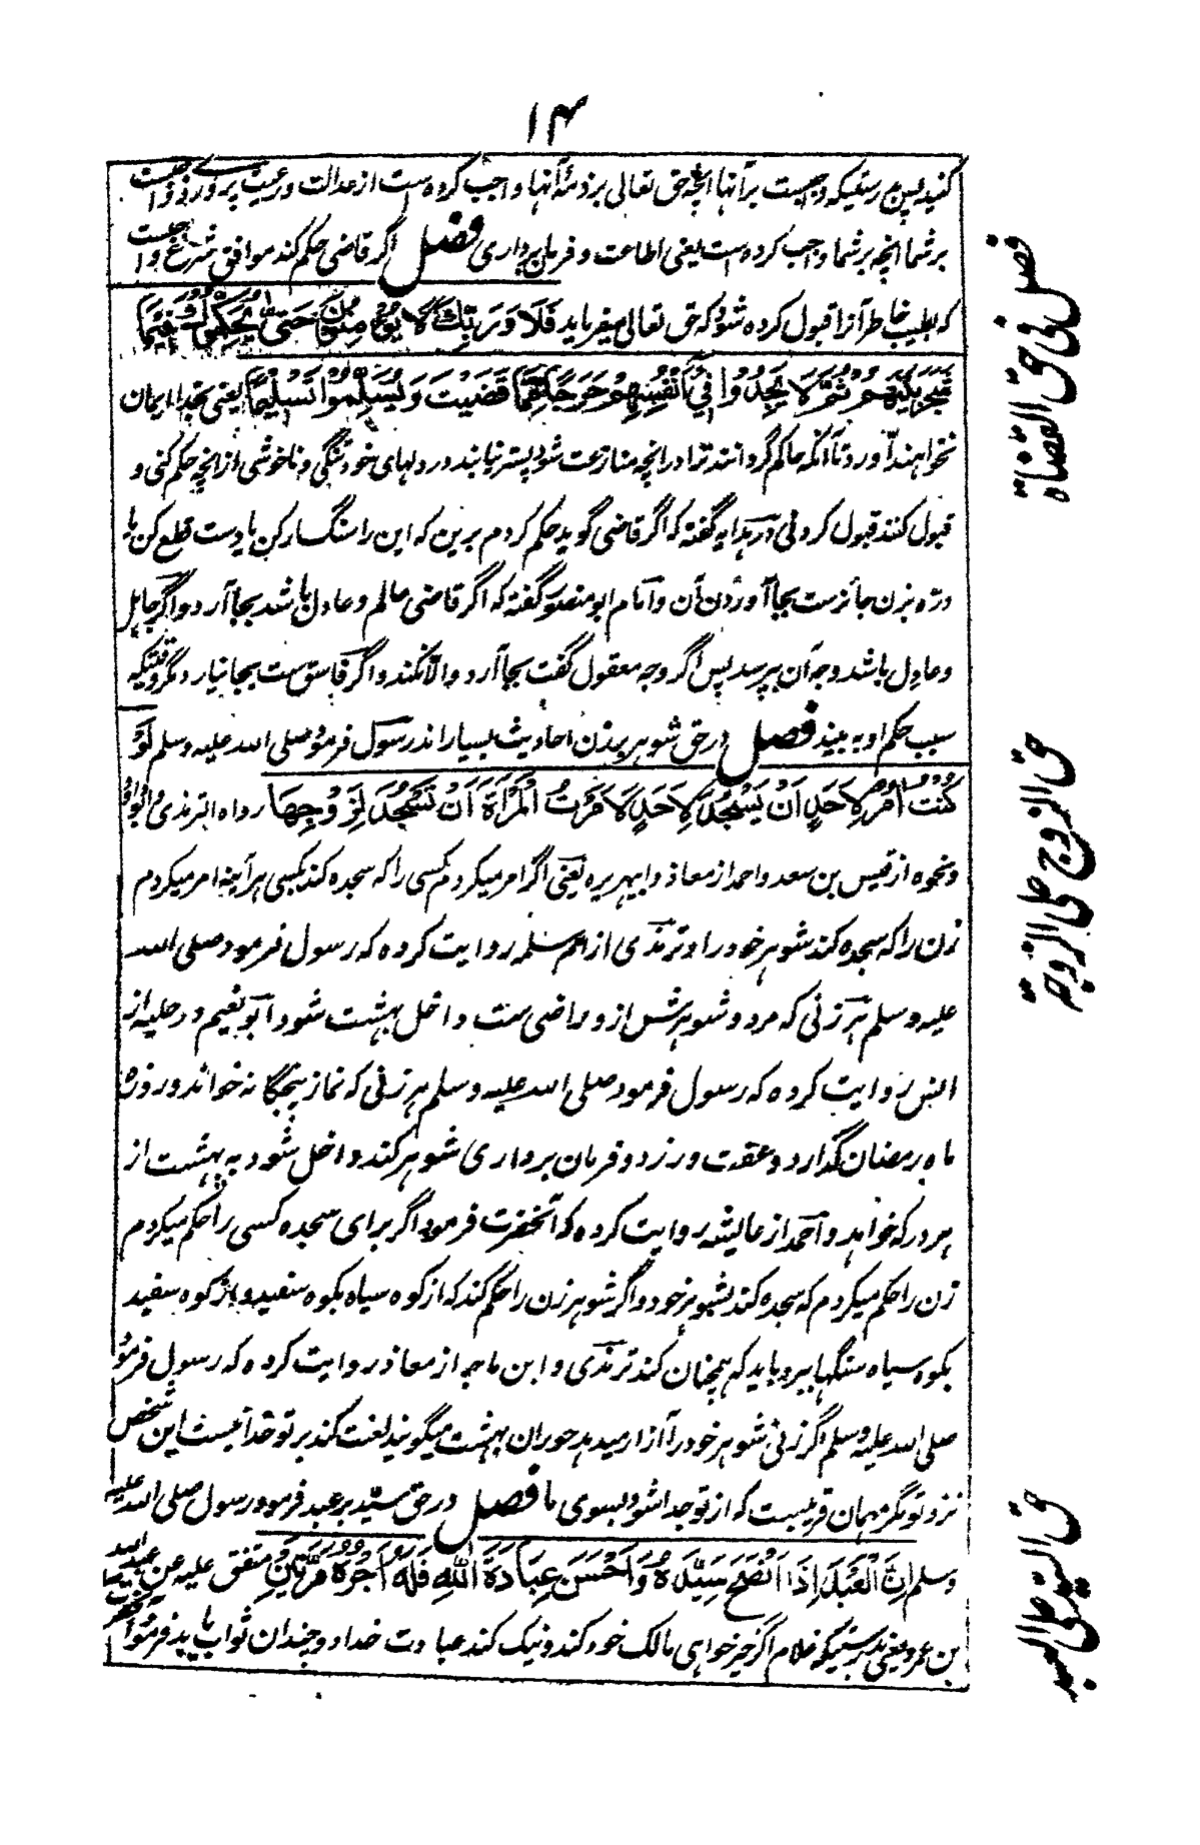 ۱۴
کنید پس بدرستیکه واجبست برآنها آنچه حق تعالی بر ذمۀ آنها واجب کرده است از عدالت و رعیت پروری و واجبست
بر شما آنچه بر شما واجب کرده است یعنی اطاعت و فرمان برداری فصل اگر قاضی حکم کند موافق شرع واجبست
که بطیب خاطر آنرا قبول کرده شود که حق تعالی میفرماید فَلَا وَرَبِّكَ لَا يُؤْمِنُونَ حَتَّى يُحَكِّمُوكَ فِيمَا
شَجَرَ بَيْنَهُمْ ثُمَّ لَا يَجِدُوا فِي أَنْفُسِهِمْ حَرَجًا مِمَّا قَضَيْتَ وَيُسَلِّمُوا تَسْلِيمًا یعنی بخدا ایمان
نخواهند آورد تا آنکه حاکم گردانند ترا در آنچه منازعت شود پستر نیابند در دلهای خود تنگی و ناخوشی از آنچه حکم کنی و
قبول کنند قبول کردنی در هدایه گفته که اگر قاضی گوید حکم کردم برین که این را سنگسار کن یا دست قطع کن یا
دره بزن جائزست بجا آوردن آن و امام ابو منصور گفته که اگر قاضی عالم و عادل باشد بجا آرد و اگر جاهل
و عادل باشد وجه آن بپرسد پس اگر وجه معقول گفت بجا آرد والا نکند و اگر فاسق ست بجا نیارد مگر وقتیکه
سبب حکم او به بیند فصل در حق شوهر بر زن احادیث بسیار اند رسول فرمود صلی الله علیه وسلم لَوْ
كُنْتُ آمُرُ لِأَحَدٍ أَنْ يَسْجُدَ لِأَحَدٍ لَأَمَرْتُ الْمَرْأَةَ أَنْ تَسْجُدَ لِزَوْجِهَا رواه الترمذی و ابوداود
و نحوه از قیس بن سعد و احمد از معاذ و ابیهریره یعنی اگر امر میکردم کسی را که سجده کند بکسی هر آینه امر میکردم
زن را که سجده کند شوهر خود را و ترمذی از ام سلمه روایت کرده که رسول فرمود صلی الله
علیه وسلم هر زنی که مرد و شوهرش ازو راضی ست داخل بهشت شود ابو نعیم در حلیه از
انس روایت کرده که رسول فرمود صلی الله علیه وسلم هر زنی که نماز پنجگانه خواند و روزه
ماه رمضان گذارد و عفت ورزد و فرمان برداری شوهر کند داخل شود به بهشت از
هر در که خواهد و احمد از عایشه روایت کرده که آنحضرت فرمود اگر برای سجده کسی را حکم میکردم
زن را حکم میکردم که سجده کند بشوهر خود و اگر شوهر زن را حکم کند که از کوه سیاه بکوه سفید و از کوه سفید
بکوه سیاه سنگها ببرد باید که همچنان کند ترمذی و ابن ماجه از معاذ روایت کرده که رسول فرمود
صلی الله علیه وسلم اگر زنی شوهر خود را آزار میدهد حوران بهشت میگویند لعنت کند بر تو خدا نیست این شخص
نزد تو مگر مهمان قریبست که از تو جدا شود بسوی ما فصل در حق سید بر عبد فرمود رسول صلی الله علیه
وسلم إِنَّ الْعَبْدَ إِذَا نَصَحَ سَيِّدَهُ وَأَحْسَنَ عِبَادَةَ اللهِ فَلَهُ أَجْرُهُ مَرَّتَيْنِ متفق علیه عن عبد الله
بن عمرو یعنی بدرستیکه غلام اگر خیر خواهی مالک خود کند و نیک کند عبادت خدا دو چندان ثواب یابد و فرمود
فصل فی حق القضاة
حق الزوج علی الزوجة
حق السید علی العبد